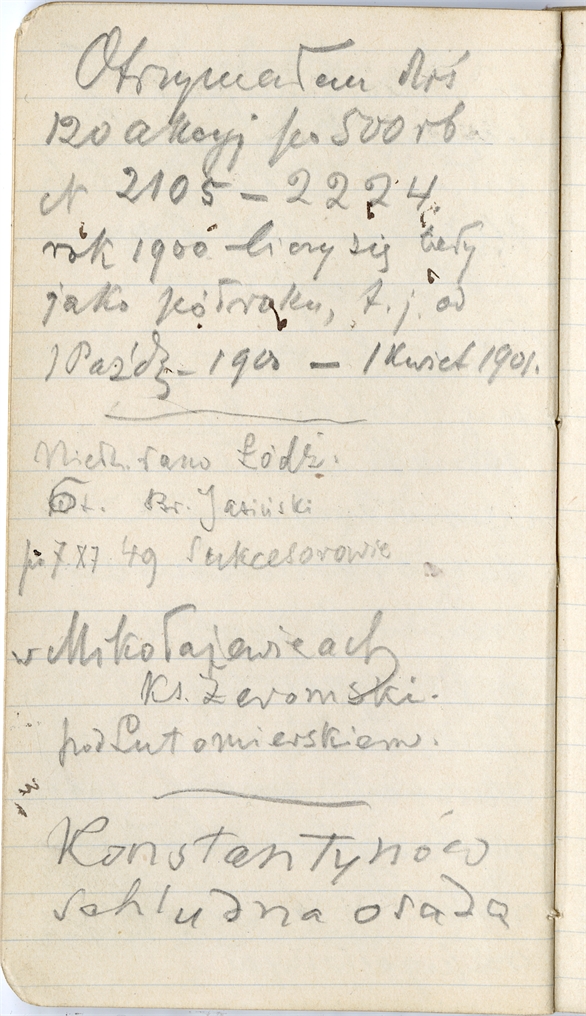 Otrzymałem dziś
120 akcyj po 500 rb.
N 2105 – 2224
rok 1900 liczy się cały
jako półroku, t. j. od
1 Paźdz – 1900 – 1 Kwiet 1901.
rano Łódź.
Br. Jasiński
po 7 XI 49 Sukcesorowie
w Mikołajewicach
Ks. Żeromski.
pod Lutomierskiem.
Konstantynów
schludna osada